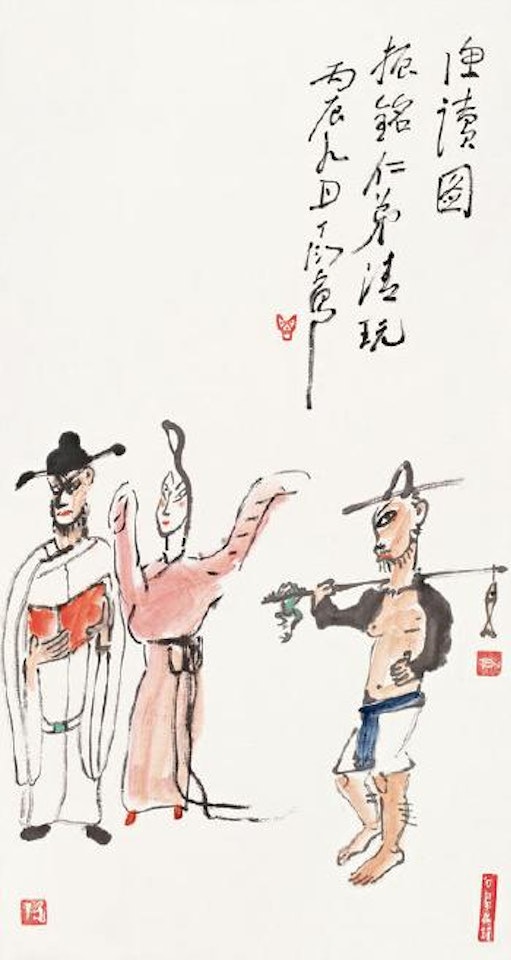 渔讀圖
振銘仁弟清玩
丙辰九月丁衍庸